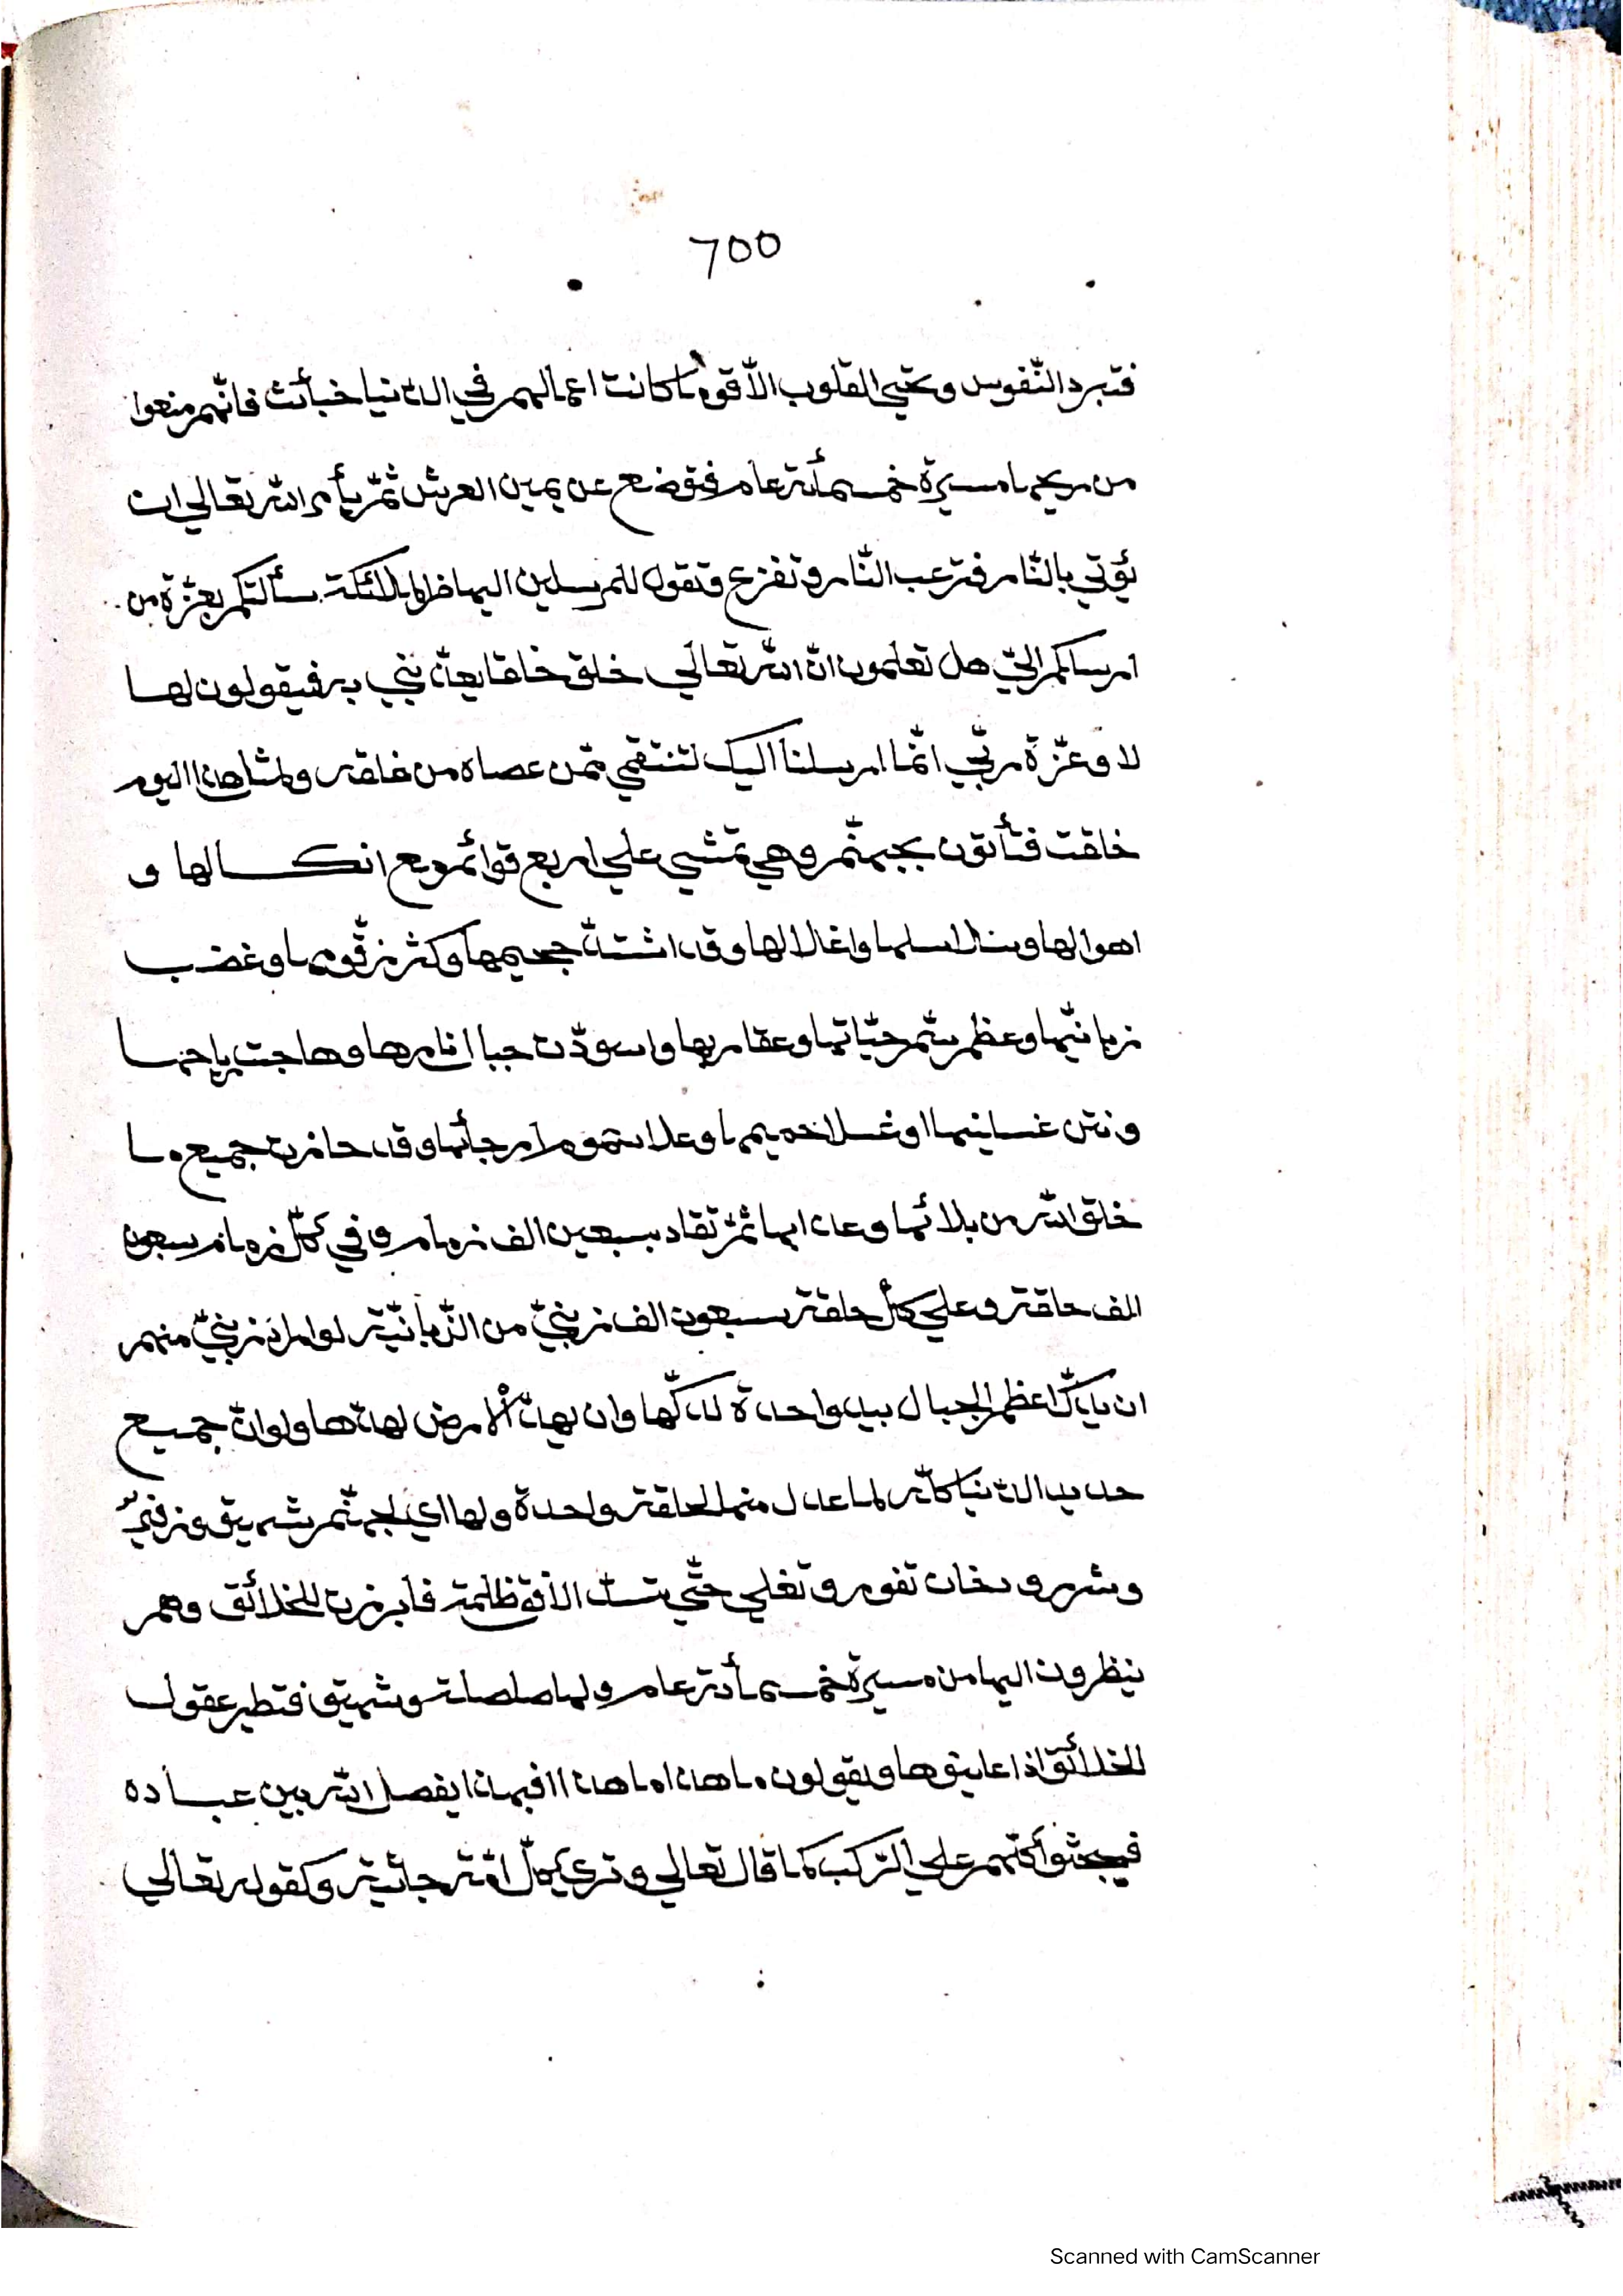 700
فتبرد النّفوس وتحيى القلوب الاّ قوم ما كانت اعمالهم في الدّنيا خبائث فانّهم منعوا
من ريحها مسيرة خمسمأئة عام فتوضع عن يمين العرش ثمّ يأمر الله تعالي ان
يؤتي بالنّار فترعب النّار وتفزع وتقول للمرسلين اليها من الملائكة سألتكم بعزّة من
ارسلكم اليّ هل تعلمون انّ الله تعالي خلق خلقا يعذّبني به فيقولون لها
لا وعزّة ربّي انّما ارسلنا اليك لتنتقمي ممّن عصاه من خلقه ولمثل هذا اليوم
خلقت فتأتون بجهنّم وهي تمشي علي اربع قوائم ومع انكالها و
اهوالها وسلاسلها واغلالها وقد اشتدّ جحيمها وكثر زقّومها وغضب
زبانيّها وعظم سمّ حيّاتها وعقاربها واسودّت جبال نارها وهاجت رياحها
ونتن غسلينها وغلا حميمها وعلا سموم ارجائها وقد حازت جميع ما
خلق الله من بلائها وعذابها ثمّ تقاد بسبعين الف زمام وفي كلّ زمام سبعون
الف حلقة وعلي كلّ حلقة سبعون الف زبنيّ من الزّبانيّة لو امر زبنيّ منهم
ان يدكّ اعظم الجبال بيد واحدة لدكّها وان يهدّ الارض لهدّها ولو انّ جميع
حديد الدّنيا كلّه لما عدل منها لحلقة واحدة ولها اي لجهنّم شهيق وزفير
وشرر ودخان تفور وتغلي حتّي تسدّ الافق ظلمة فأبرزت للخلائق وهم
ينظرون اليها من مسيرة خمسمأئة عام ولها صلصلة وشهيق فتطير عقول
الخلائق اذا عاينوها ويقولون ما هذا ما هذا افبهذا يفصل الله بين عباده
فيجثوا كلّهم علي الرّكب كما قال تعالي وتري كلّ امّة جاثية وكقوله تعالي
Scanned with CamScanner